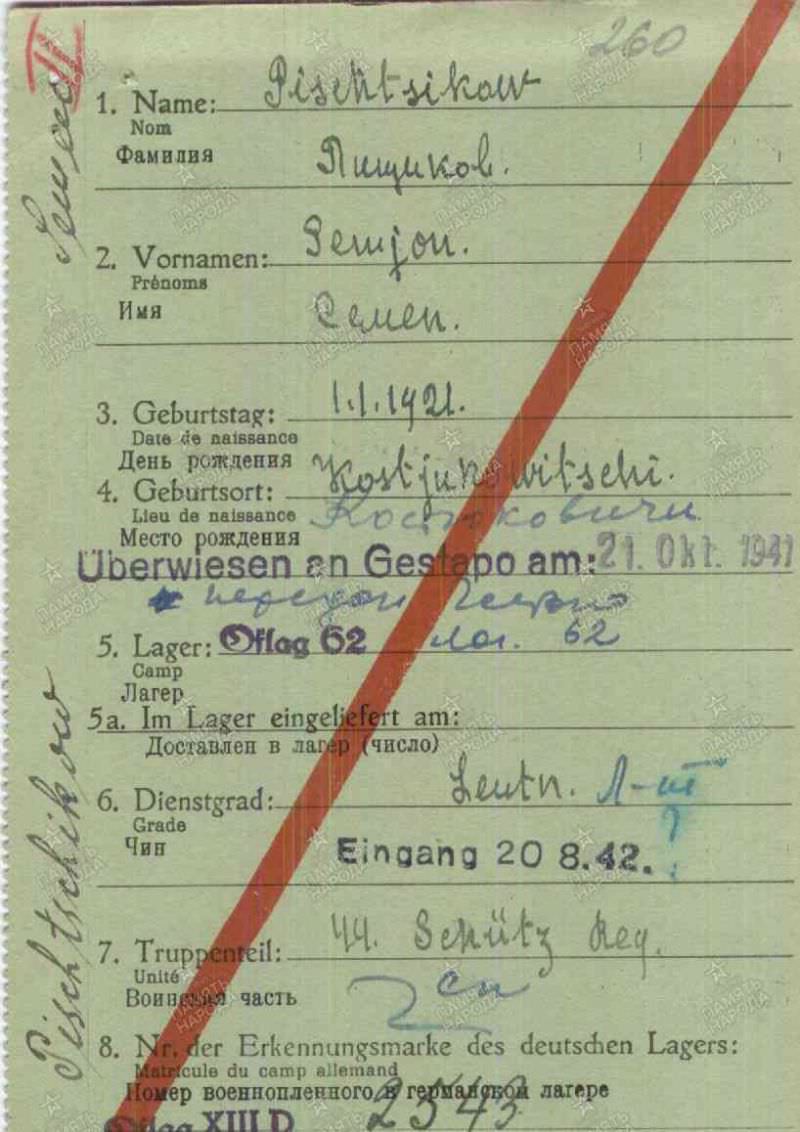 260
II
1. Name: Pischtsikow
Nom
Фамилия
Пищиков.
2. Vornamen: Semjon.
Prénoms
Имя
Семен.
3. Geburtstag: 1.1.1921.
Date de naissance
День рождения
4. Geburtsort: Kostjukowitschi.
Lieu de naissance Костюковичи
Место рождения
Überwiesen an Gestapo am: 21. Okt. 1941
передан Гестапо
5. Lager: Oflag 62 лаг. 62
Camp
Лагер
5a. Im Lager eingeliefert am:
Доставлен в лагер (число)
6. Dienstgrad: Leutn. Л-т
Grade
Чин
?
Eingang 20 8.42.
7. Truppenteil: 44. Schütz Reg.
Unité
Воинская часть
сп
8. Nr. der Erkennungsmarke des deutschen Lagers:
Matricule du camp allemand
Номер военнопленного в германском лагере
Oflag XIII D 2543
Pischtschikow Semjon
ПАМЯТЬ НАРОДА